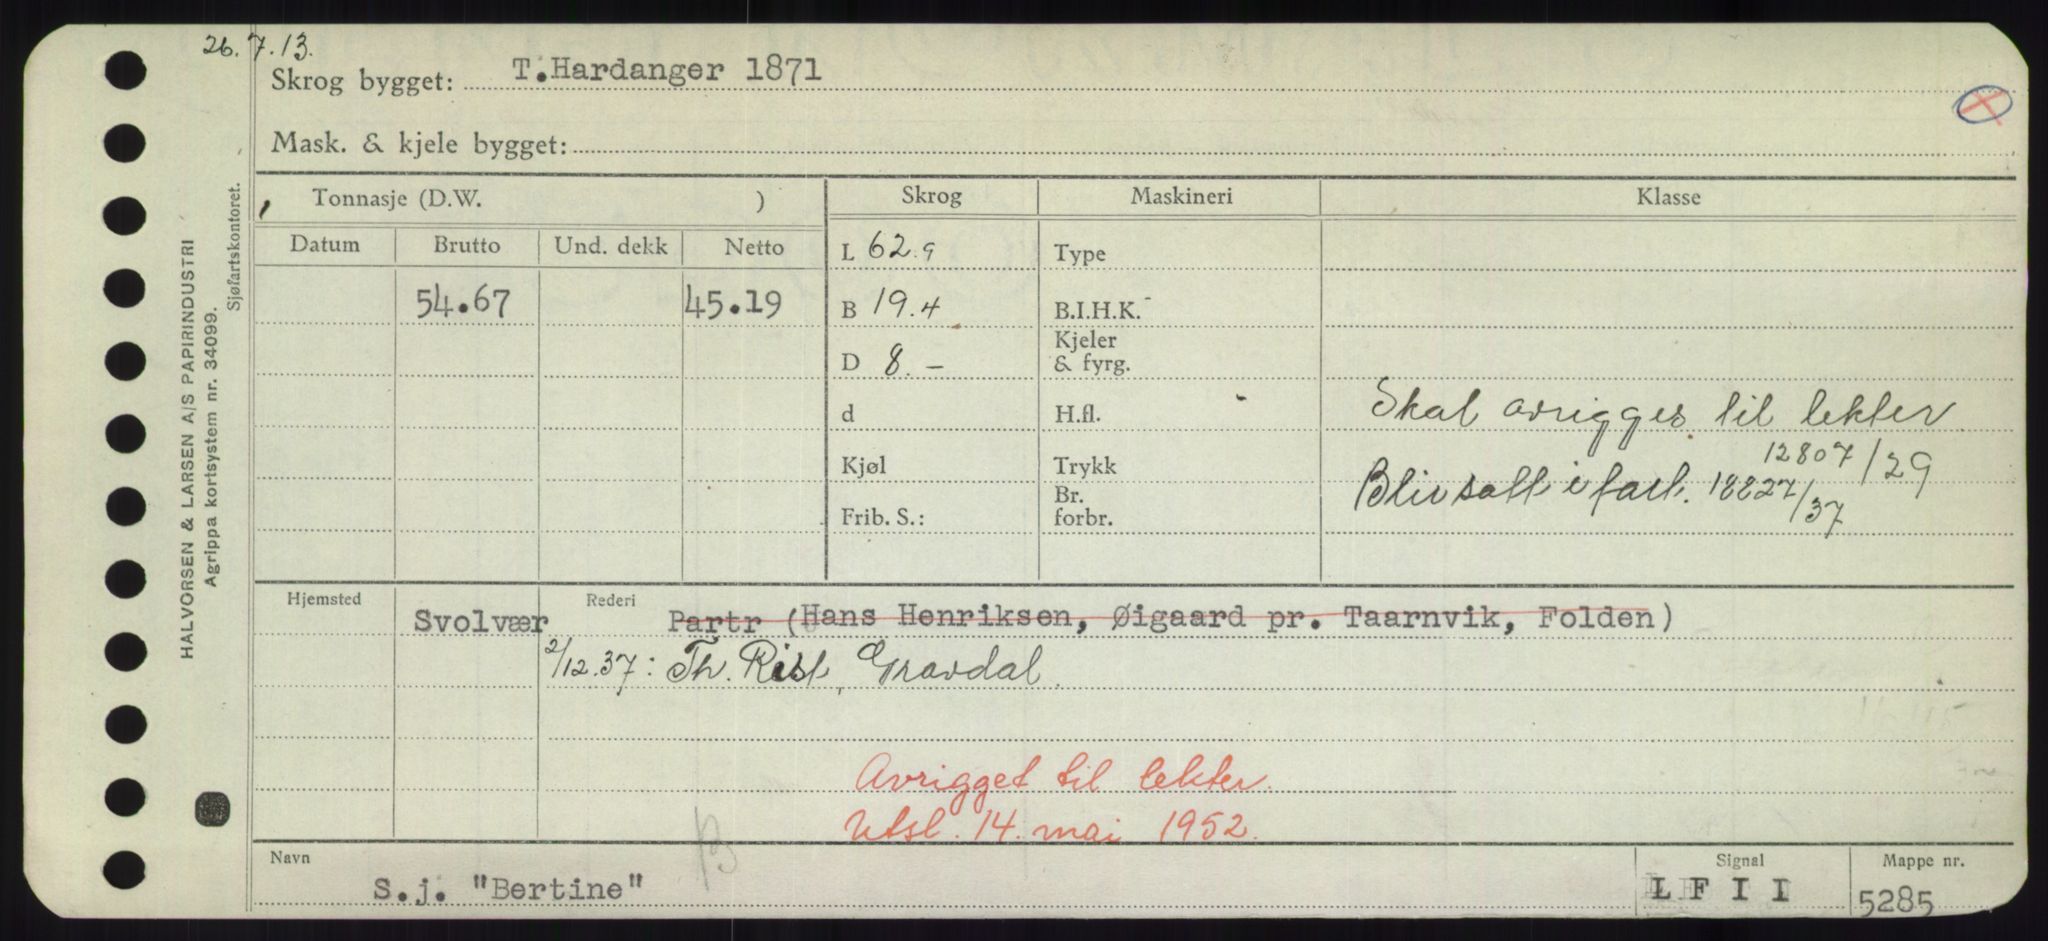 26.7.13.
Skrog bygget: T.Hardanger 1871
Mask. & kjele bygget:
Tonnasje (D.W. ) Skrog Maskineri Klasse
Datum Brutto Und. dekk Netto
L 62.9 Type
54.67 45.19 B 19.4 B.I.H.K.
D 8.- Kjeler & fyrg.
d H.fl. Skal avrigges til lekter
12807/29
Kjøl Trykk Blir satt i fart. 18827/37
Frib. S.: Br. forbr.
Hjemsted Svolvær Rederi Partr (Hans Henriksen, Øigaard pr. Taarnvik, Folden)
2/12.37: Th. Rist, Gravdal.
Avrigget til lekter.
Utsl. 14. mai 1952.
Navn Signal Mappe nr.
S.j. "Bertine" L F I I 5285
HALVORSEN & LARSEN A/S PAPIRINDUSTRI
Agrippa kortsystem nr. 34099.
Sjøfartskontoret.